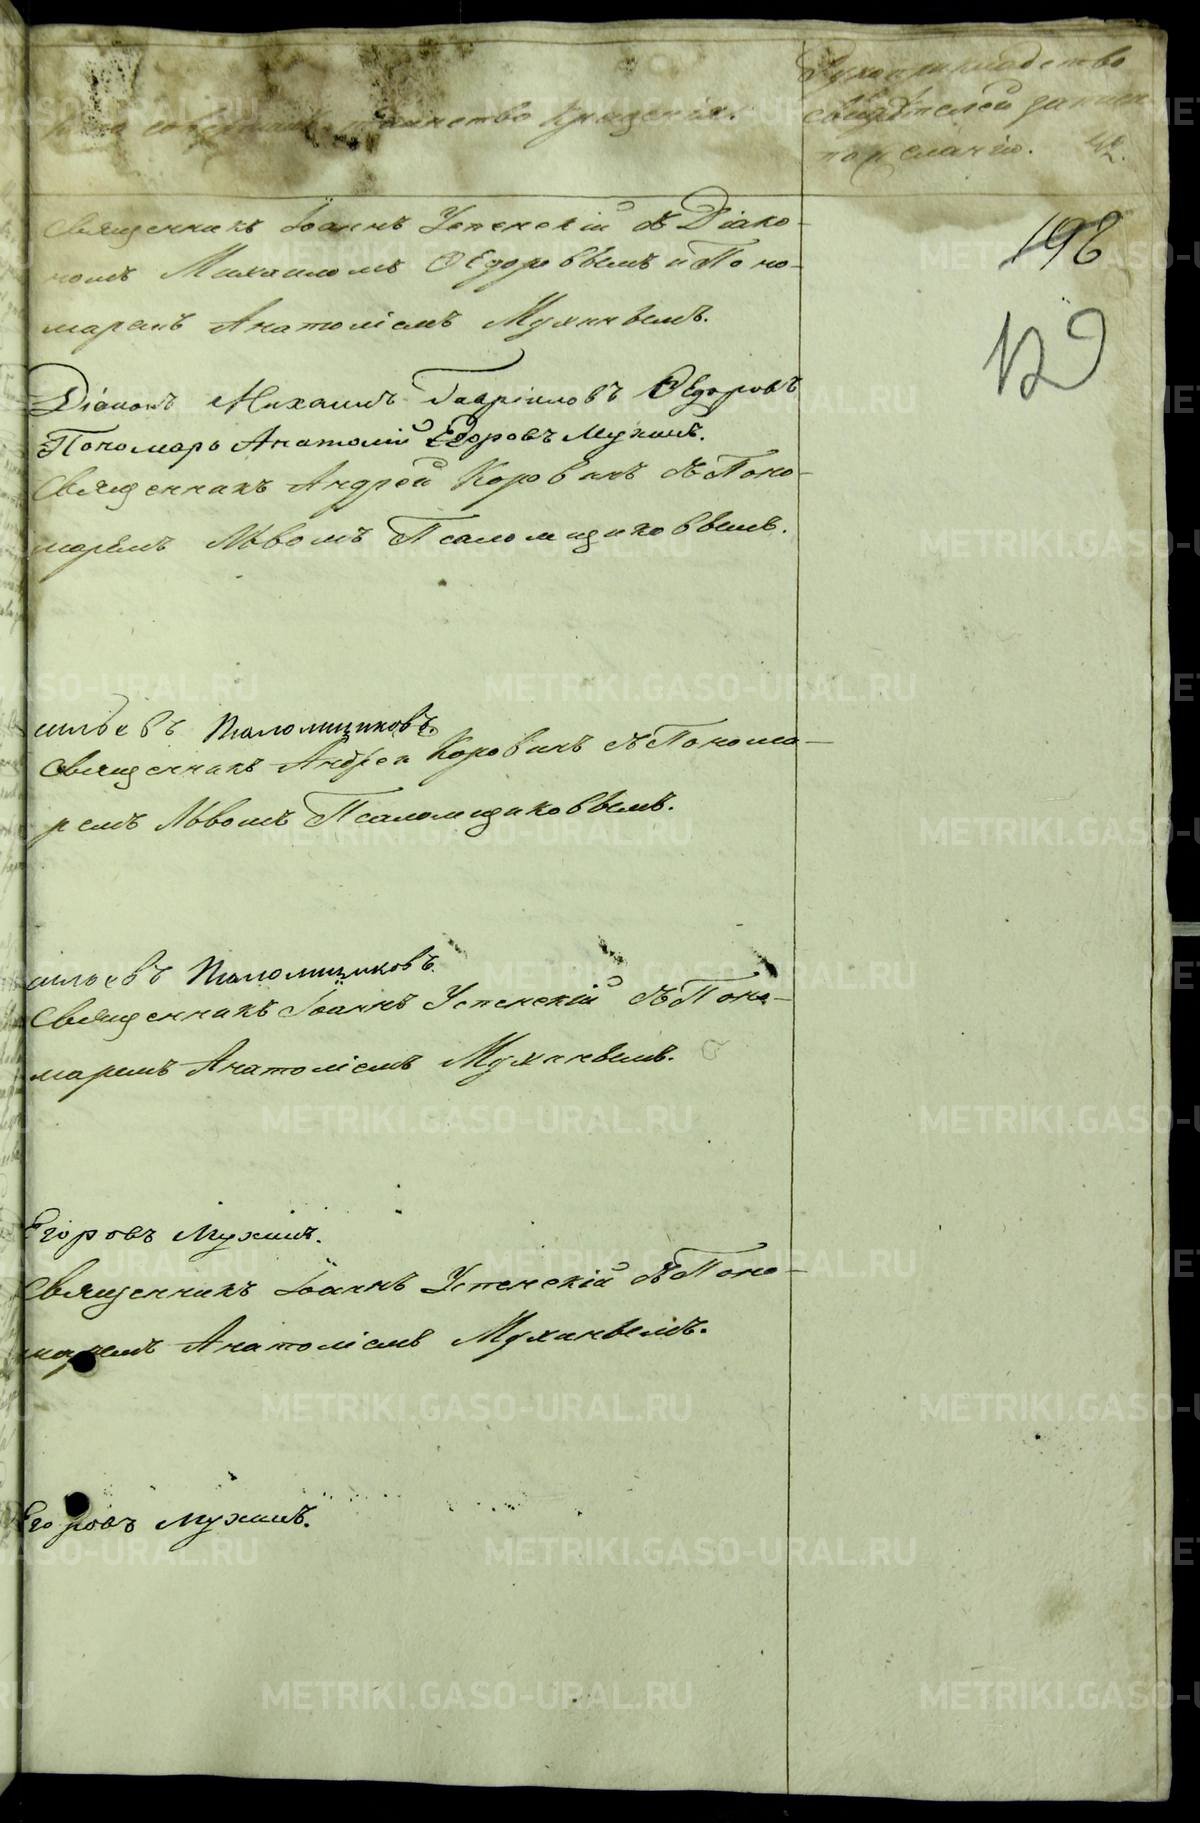 Кто совершалъ таинство крещенiя.
Рукоприкладство
свидѣтелей записи
по желанiю.
42.
198
129
Священникъ Iоаннъ Успенскiй съ Дiако-
номъ Михаиломъ Ѳедоровымъ и Поно-
маремъ Анатолiемъ Мухинымъ.
Дiаконъ Михаилъ Гаврiиловъ Ѳедоровъ
Пономарь Анатолiй Егоровъ Мухинъ.
Священникъ Андрей Коровинъ съ Поно-
маремъ Львомъ Псаломщиковымъ.
сильевъ Псаломщиковъ.
Священникъ Андрей Коровинъ съ Понома-
ремъ Львомъ Псаломщиковымъ.
сильевъ Псаломщиковъ.
Священникъ Iоаннъ Успенскiй съ Поно-
маремъ Анатолiемъ Мухинымъ.
Егоровъ Мухинъ.
Священникъ Iоаннъ Успенскiй съ Поно-
маремъ Анатолiемъ Мухинымъ.
Егоровъ Мухинъ.
METRIKI.GASO-URAL.RU